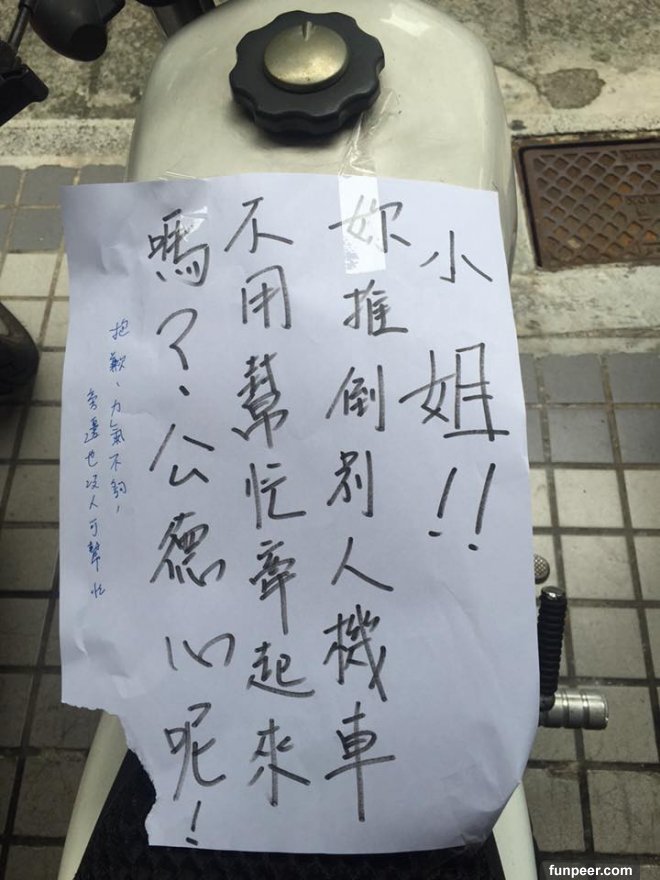 小姐!!
妳推倒別人機車
不用幫忙牽起來
嗎?、公德心呢!
抱歉、力氣不夠,
旁邊也沒人可幫忙
funpeer.com